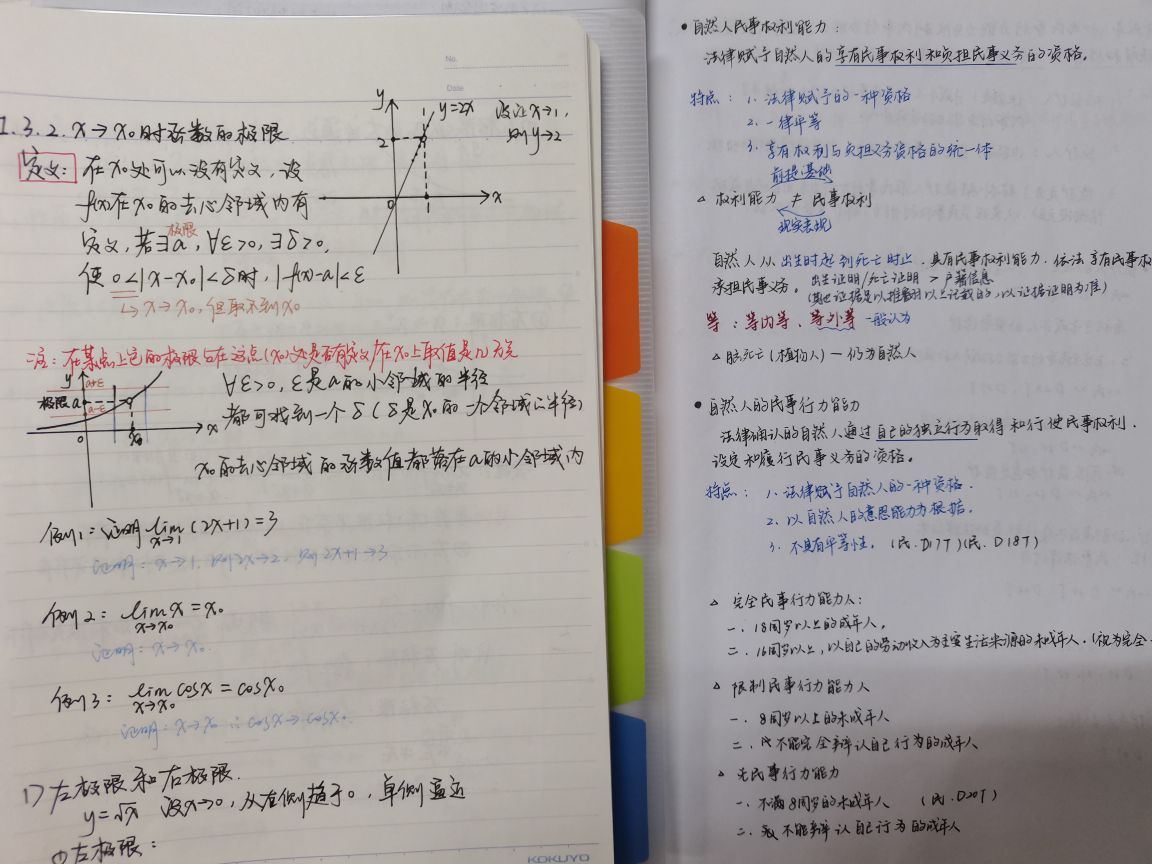 No.
Date
1.3.2. x→x₀时函数的极限
定义: 在x₀处可以没有定义,设
f(x)在x₀的去心邻域内有
极限
定义,若∃a,∀ε>0,∃δ>0,
使 0<|x-x₀|<δ时,|f(x)-a|<ε
↳x→x₀,但取不到x₀
y
y=2x
2
1
0
1
x
设让x→1,
则y→2
注: 在某点上它的极限与在这点(x₀)处是否有定义/在x₀上取值是几无关
y
a+ε
极限a
a-ε
0
x₀
x
∀ε>0,ε是a的小邻域的半径
都可找到一个δ(δ是x₀的一个邻域的半径)
x₀的去心邻域的函数值都落在a的小邻域内
例1:证明 lim x→1 (2x+1)=3
证明:x→1,则2x→2,则2x+1→3
例2: lim x→x₀ x=x₀
证明:x→x₀
例3: lim x→x₀ cosx=cosx₀
证明:x→x₀ ∴cosx→cosx₀
1) 左极限和右极限.
y=√x 设x→0,从右侧趋于0,单侧逼近
①左极限:
KOKUYO
• 自然人民事权利能力:
法律赋予自然人的享有民事权利和负担民事义务的资格。
特点: 1. 法律赋予的一种资格
2. 一律平等
3. 享有权利与负担义务资格的统一体
前提基础
△ 权利能力 ≠ 民事权利
现实表现
自然人从出生时起到死亡时止,具有民事权利能力,依法享有民事权
承担民事义务。 出生证明/死亡证明 > 户籍信息
(其他证据足以推翻以上记载的,以证据证明为准)
等:等内等、等外等 一般认为
△ 脑死亡(植物人)—仍为自然人
• 自然人的民事行为能力
法律确认的自然人通过自己的独立行为取得和行使民事权利,
设定和履行民事义务的资格。
特点: 1. 法律赋予自然人的一种资格.
2. 以自然人的意思能力为根据.
3. 不具有平等性. (民.D17T)(民.D18T)
△ 完全民事行为能力人:
一. 18周岁以上的成年人.
二. 16周岁以上,以自己的劳动收入为主要生活来源的未成年人.(视为完全
△ 限制民事行为能力人
一. 8周岁以上的未成年人
二. 不能完全辨认自己行为的成年人
△ 无民事行为能力
一. 不满8周岁的未成年人 (民.D20T)
二. 不能辨认自己行为的成年人